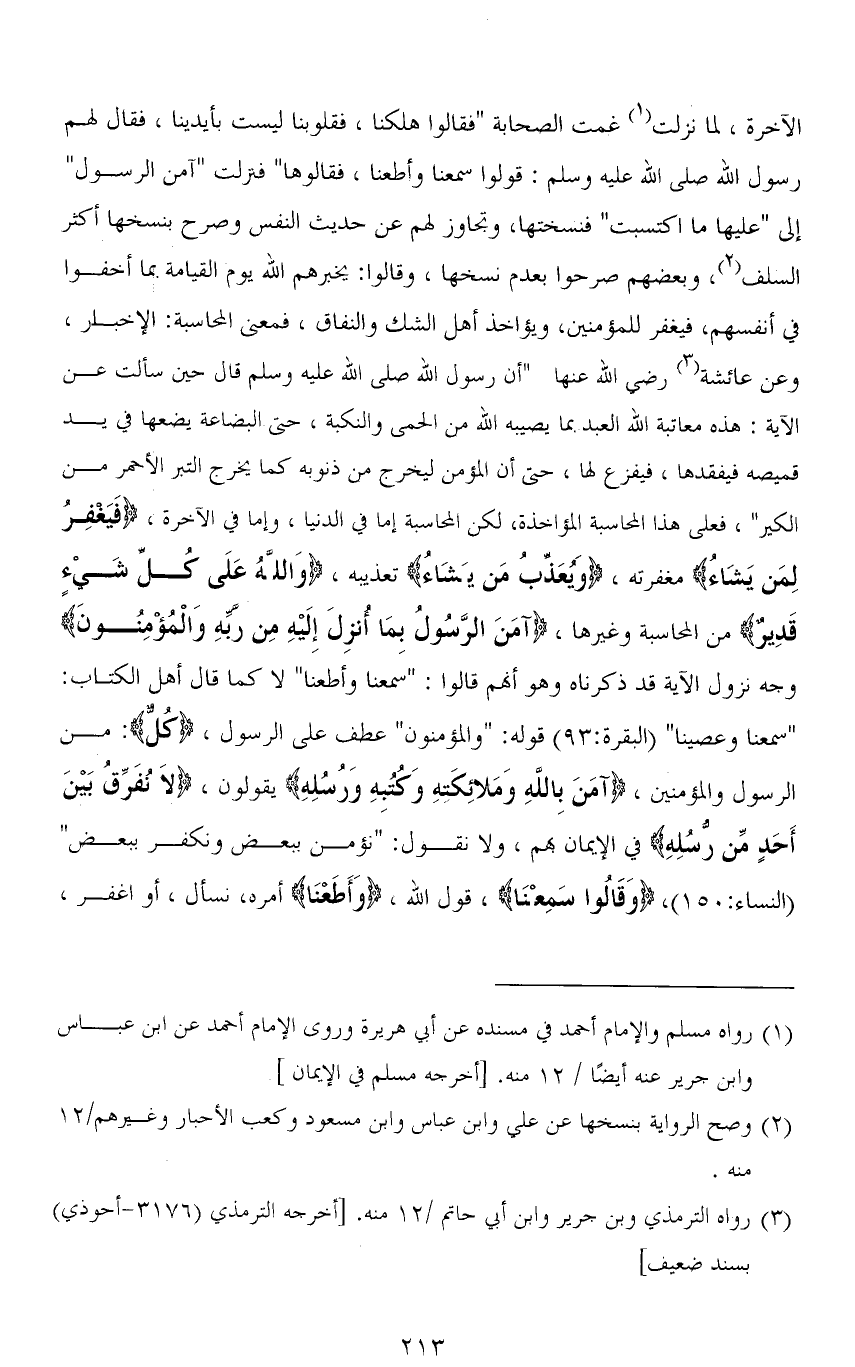 الآخرة ، لما نزلت(١) غمت الصحابة "فقالوا هلكنا ، فقلوبنا ليست بأيدينا ، فقال لهم
رسول الله صلى الله عليه وسلم : قولوا سمعنا وأطعنا ، فقالوها" فنزلت "آمن الرسول"
إلى "عليها ما اكتسبت" فنسختها، وتجاوز لهم عن حديث النفس وصرح بنسخها أكثر
السلف(٢)، وبعضهم صرحوا بعدم نسخها ، وقالوا: يخبرهم الله يوم القيامة بما أخفوا
في أنفسهم، فيغفر للمؤمنين، ويؤاخذ أهل الشك والنفاق ، فمعنى المحاسبة: الإخبار ،
وعن عائشة(٣) رضي الله عنها "أن رسول الله صلى الله عليه وسلم قال حين سألت عن
الآية : هذه معاتبة الله العبد بما يصيبه الله من الحمى والنكبة ، حتى البضاعة يضعها في يد
قميصه فيفقدها ، فيفزع لها ، حتى أن المؤمن ليخرج من ذنوبه كما يخرج التبر الأحمر من
الكير" ، فعلى هذا المحاسبة المؤاخذة، لكن المحاسبة إما في الدنيا ، وإما في الآخرة ، ﴿فَيَغْفِرُ
لِمَن يَشَاءُ﴾ مغفرته ، ﴿وَيُعَذِّبُ مَن يَشَاءُ﴾ تعذيبه ، ﴿وَاللَّهُ عَلَى كُلِّ شَيْءٍ
قَدِيرٌ﴾ من المحاسبة وغيرها ، ﴿آمَنَ الرَّسُولُ بِمَا أُنزِلَ إِلَيْهِ مِن رَّبِّهِ وَالْمُؤْمِنُونَ﴾
وجه نزول الآية قد ذكرناه وهو أنهم قالوا : "سمعنا وأطعنا" لا كما قال أهل الكتاب:
"سمعنا وعصينا" (البقرة:٩٣) قوله: "والمؤمنون" عطف على الرسول ، ﴿كُلٌّ﴾: من
الرسول والمؤمنين ، ﴿آمَنَ بِاللَّهِ وَمَلائِكَتِهِ وَكُتُبِهِ وَرُسُلِهِ﴾ يقولون ، ﴿لاَ نُفَرِّقُ بَيْنَ
أَحَدٍ مِّن رُّسُلِهِ﴾ في الإيمان بهم ، ولا نقول: "نؤمن ببعض ونكفر ببعض"
(النساء:١٥٠)، ﴿وَقَالُوا سَمِعْنَا﴾ ، قول الله ، ﴿وَأَطَعْنَا﴾ أمره، نسأل ، أو اغفر ،
(١) رواه مسلم والإمام أحمد في مسنده عن أبي هريرة وروى الإمام أحمد عن ابن عباس
وابن جرير عنه أيضًا / ١٢ منه. [أخرجه مسلم في الإيمان ]
(٢) وصح الرواية بنسخها عن علي وابن عباس وابن مسعود وكعب الأحبار وغيرهم/١٢
منه .
(٣) رواه الترمذي وبن جرير وابن أبي حاتم /١٢ منه. [أخرجه الترمذي (٣١٧٦-أحوذي)
بسند ضعيف]
٢١٣